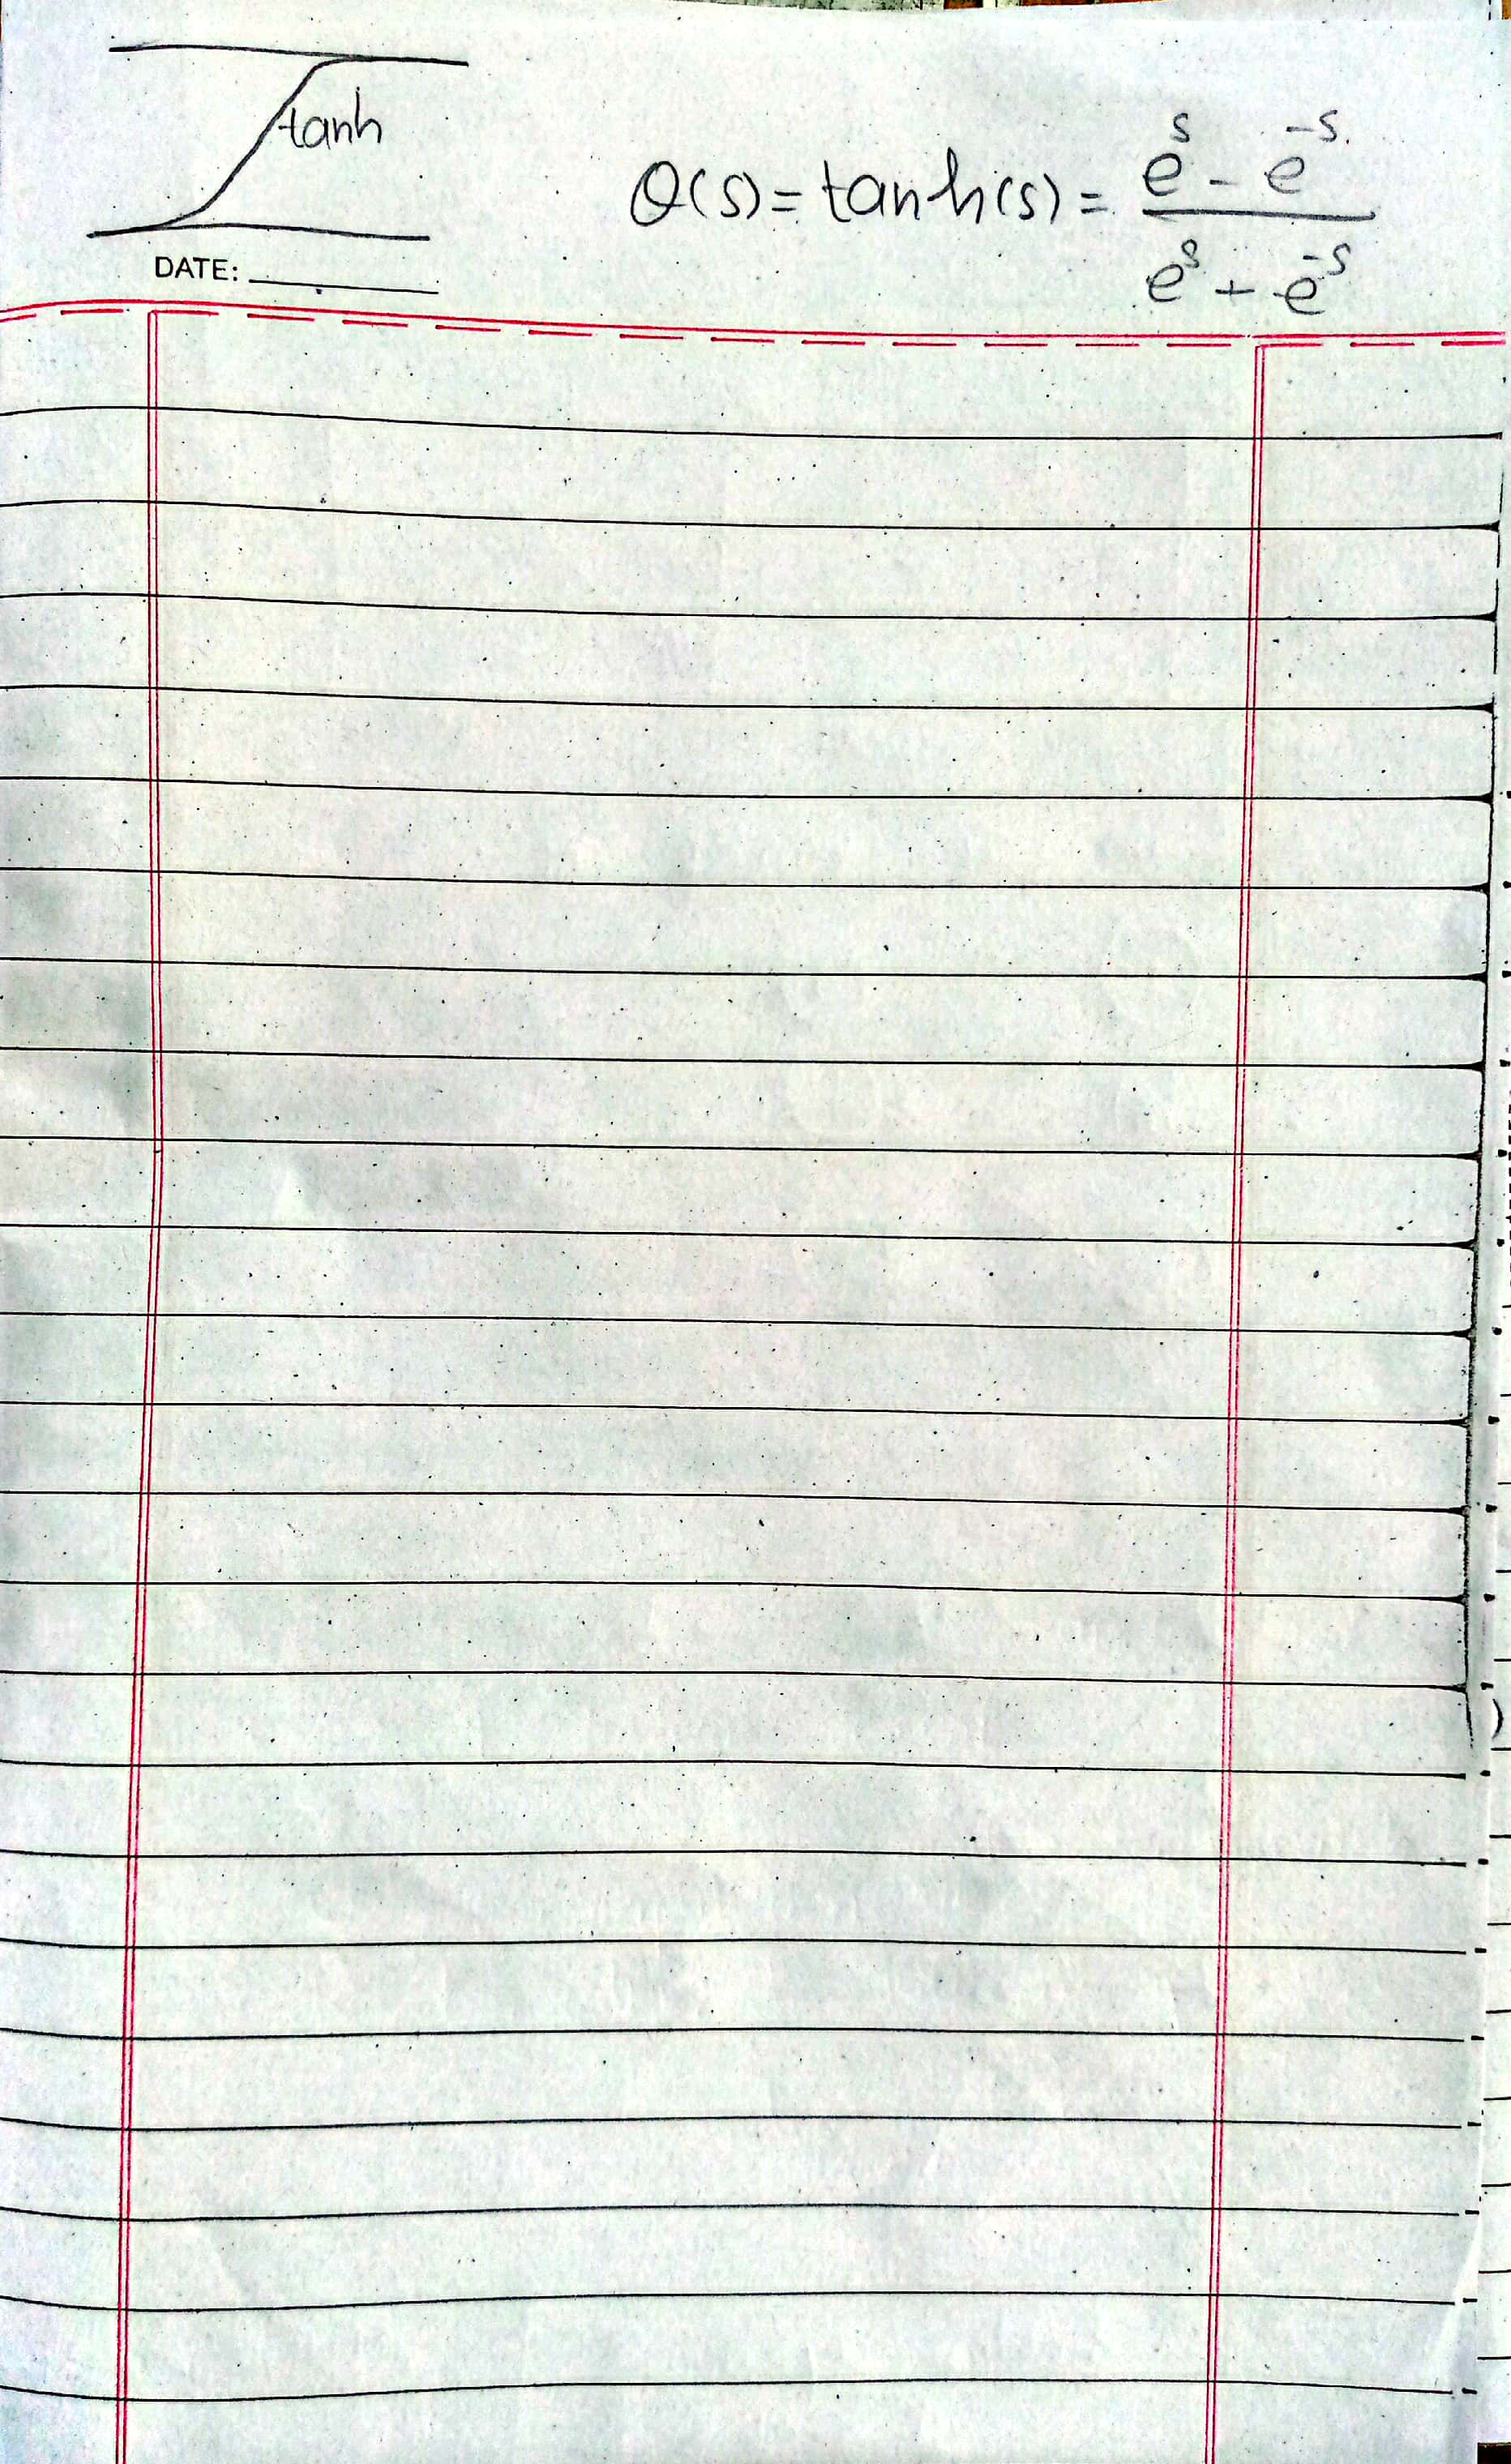 tanh
θ(s) = tanh(s) = \frac{e^s - e^{-s}}{e^s + e^{-s}}
DATE: